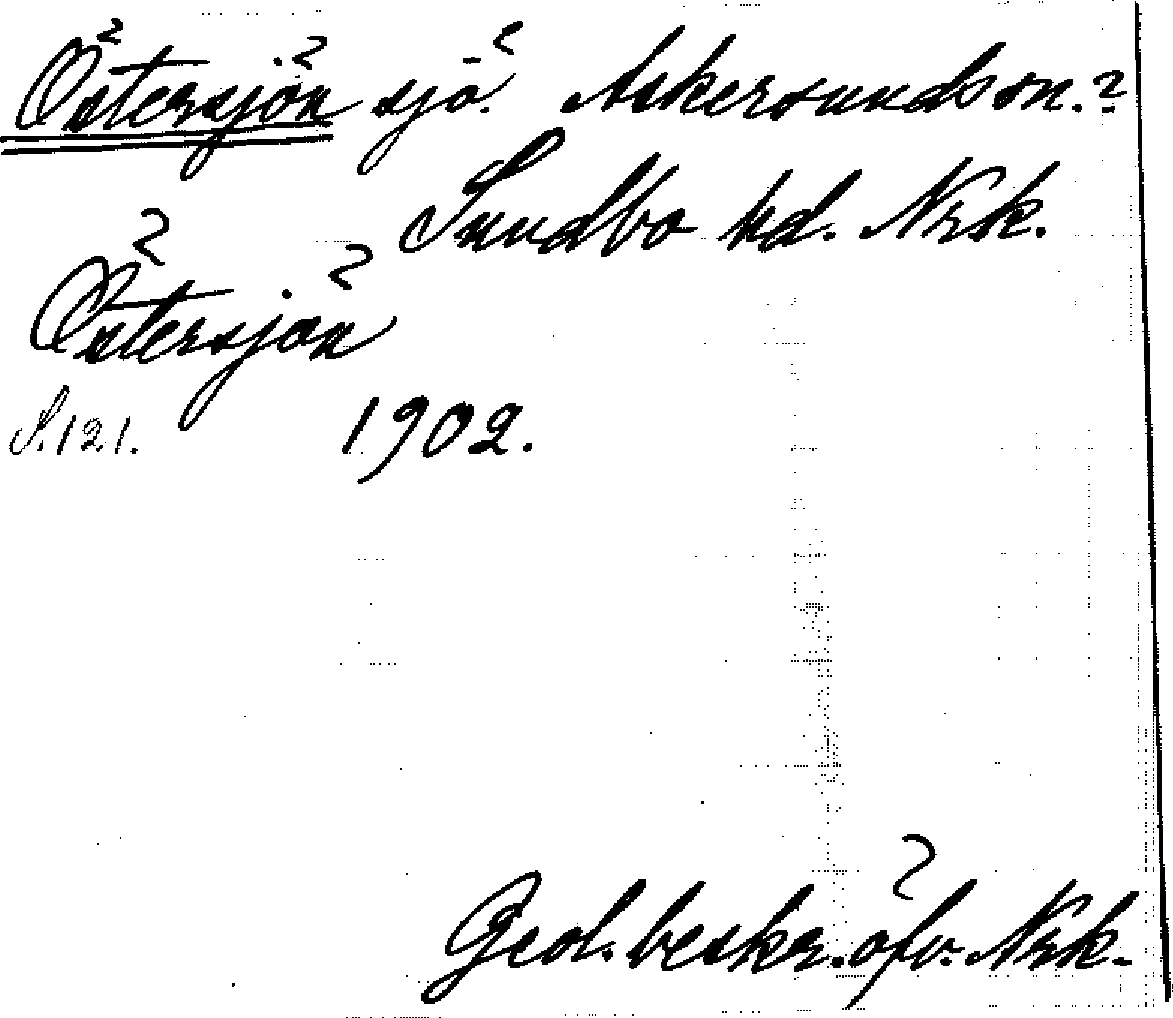 Östersjön sjö. Askersundson.?
Sundbo hd. Nrk.
Östersjön
S.121. 1902.
Geol. beskr. öfv. Nrk.